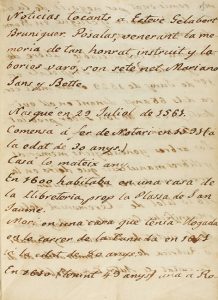 Noticias tocants a Esteve Gelabert
Bruniquer. Posalas, venerant la me-
moria de tan honrat, instruit y la-
boriós varó, son setè net Mariano
Sans y Botte.
Nasqué en 29 Juliol de 1561.
Comensá á fer de Notari en 1591 á
la edat de 30 anys.
Casá lo mateix any.
En 1600 habitaba en una casa de
la Llibreteria, prop la Plassa de San
Jaume.
Morí en una casa que tenia llogada
en lo carrer de la Tanda en 1641
á la edat de 80 anys.
En 1610 tenint 49 anys aná a Ro-